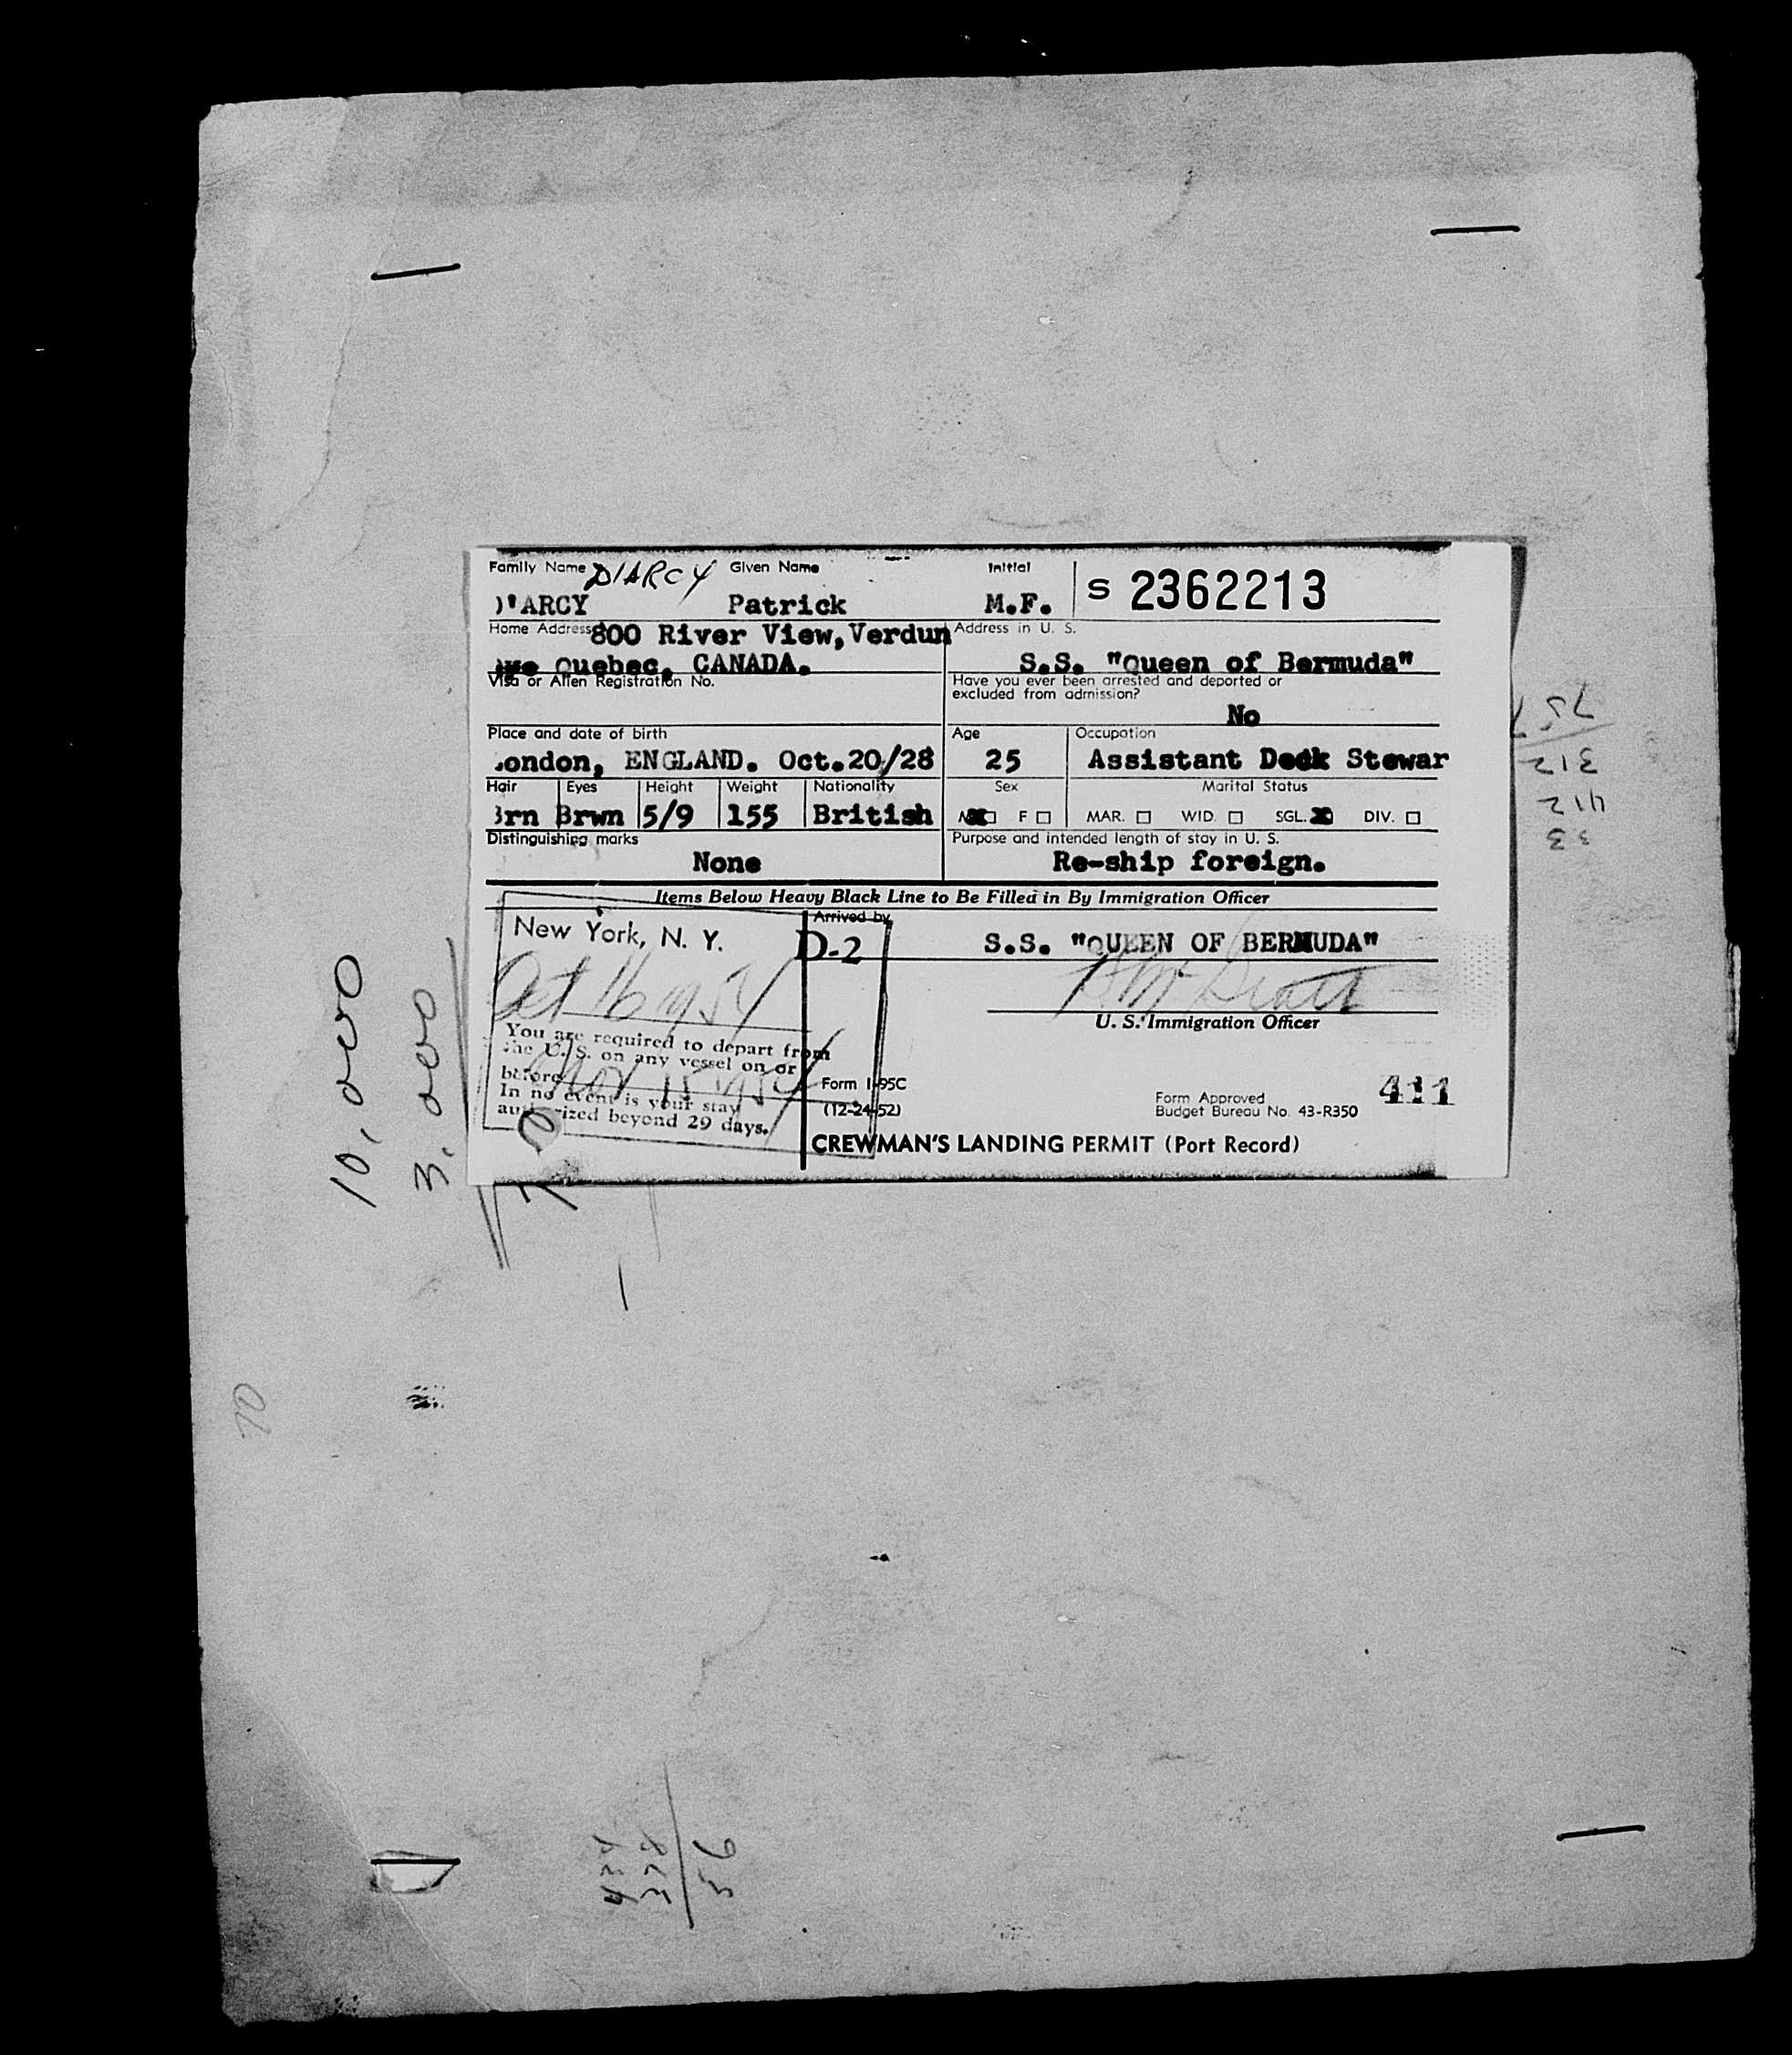 Family Name D'ARCY Given Name Initial
'ARCY Patrick M.F. S 2362213
Home Address 800 River View, Verdun Address in U. S.
Quebec, CANADA. S.S. "Queen of Bermuda"
Visa or Alien Registration No. Have you ever been arrested and deported or
excluded from admission?
No
Place and date of birth Age Occupation
ondon, ENGLAND. Oct.20/28 25 Assistant Deck Stewar
Hair Eyes Height Weight Nationality Sex Marital Status
Brn Brwn 5/9 155 British M F MAR. WID. SGL. DIV.
Distinguishing marks Purpose and intended length of stay in U. S.
None Re-ship foreign.
Items Below Heavy Black Line to Be Filled in By Immigration Officer
Arrived by
New York, N. Y. D-2 S.S. "QUEEN OF BERMUDA"
Oct 16 1954
U. S. Immigration Officer
You are required to depart from
the U. S. on any vessel on or
before Nov 15 1954
In no event is your stay
authorized beyond 29 days.
Form I-95C
(12-24-52)
Form Approved
Budget Bureau No. 43-R350
411
CREWMAN'S LANDING PERMIT (Port Record)
10,000
3,000
70
757
312
412
33
434
378
56